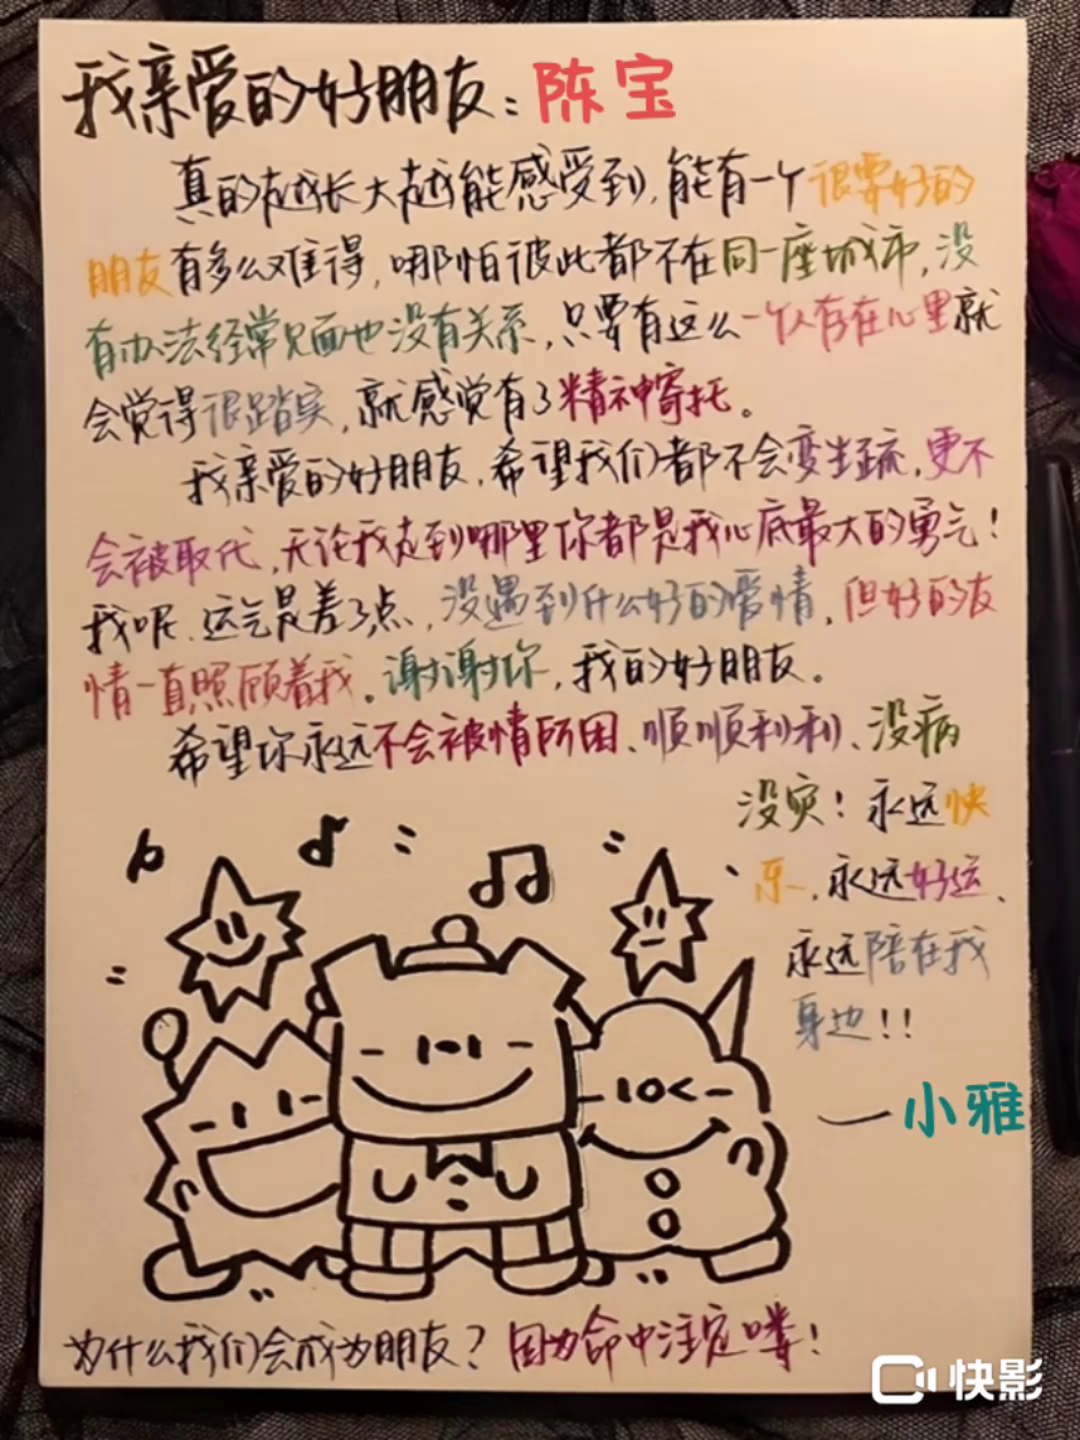 我亲爱的好朋友：陈宝
真的越长大越能感受到，能有一个很要好的
朋友有多么难得，哪怕彼此都不在同一座城市，没
有办法经常见面也没有关系，只要有这么一个人存在心里就
会觉得很踏实，就感觉有了精神寄托。
我亲爱的好朋友，希望我们都不会变生疏，更不
会被取代，无论我走到哪里你都是我心底最大的勇气！
我呢、运气是差了点，没遇到什么好的爱情，但好的友
情一直照顾着我。谢谢你，我的好朋友。
希望你永远不会被情所困、顺顺利利、没病
没灾！永远快
乐、永远好运、
永远陪在我
身边！！
—小雅
为什么我们会成为朋友？因为命中注定喽！
快影